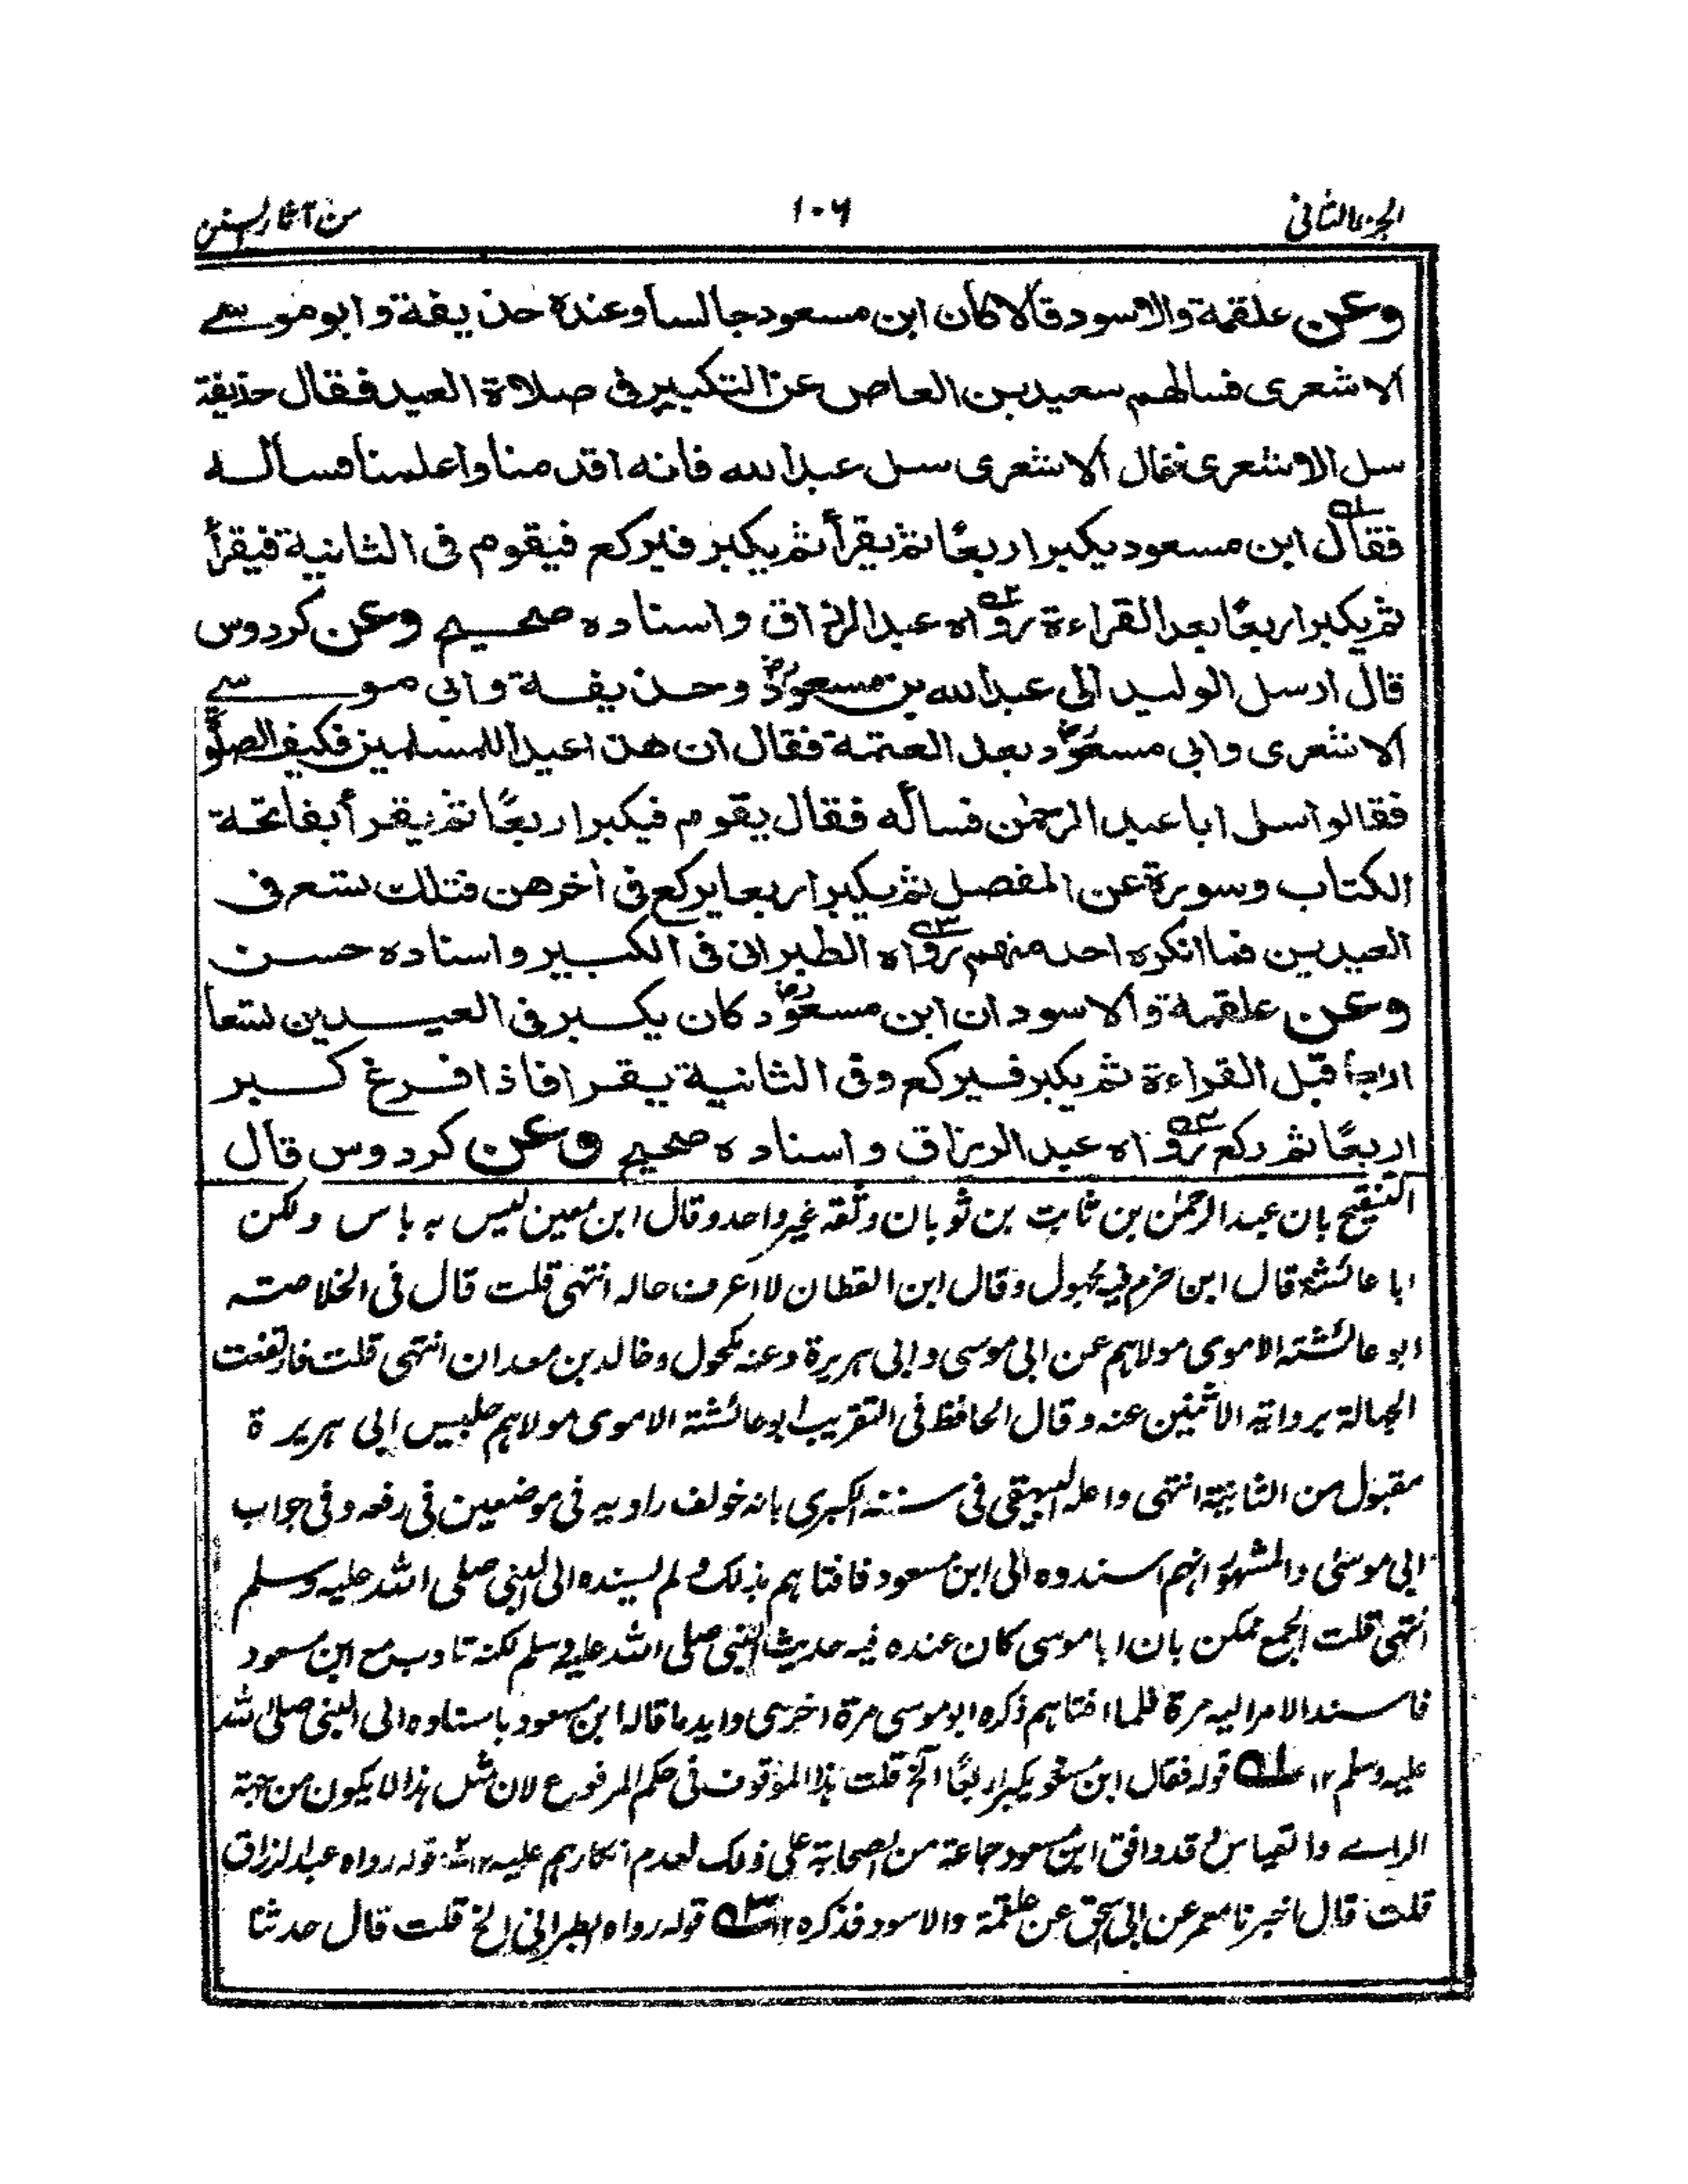 الجزء الثانی ۱۰۶ من آثار السنن
وعن علقمة والاسود قالا كان ابن مسعود جالسا وعنده حذيفة وابو موسے
الاشعری فسالهم سعيد بن العاص عن التكبير فی صلاة العيد فقال حذيفة
سل الاشعری فقال الاشعری سل عبد الله فانه اقدمنا واعلمنا فساله
فقال ابن مسعود يكبر اربعًا ثم يقرأ ثم يكبر فيركع فيقوم فی الثانية فيقرأ
ثم يكبر اربعًا بعد القراءة رواه عبد الرزاق واسناده صحيح وعن كردوس
قال ارسل الوليد الی عبد الله بن مسعودؓ وحذيفة وابی موسے
الاشعری وابی مسعودؓ بعد العتمة فقال ان هذا عيد اللمسلمين فكيف الصلوٰ
فقالوا سل ابا عبد الرحمٰن فسأله فقال يقوم فيكبر اربعًا ثم يقرأ بفاتحة
الكتاب وسورة عن المفصل ثم يكبر اربعا يركع فی أخرهن فتلك تسع فی
العيدين فما انكره احد منهم رواه الطبرانی فی الكبير واسناده حسن
وعن علقمة والاسود ان ابن مسعودؓ كان يكبر فی العيدين تسعا
اربعا قبل القراءة ثم يكبر فيركع وفی الثانية يقرا فاذا فرغ كبر
اربعًا ثم ركع رواه عبد الرزاق واسناده صحيح وعن كردوس قال
التنقیح بان عبد الرحمٰن بن ثابت بن ثوبان وثقه غیر واحد وقال ابن معین لیس به باس ولکن
ابا عائشة قال ابن حزم فیه مجهول وقال ابن القطان لا اعرف حاله انتهی قلت قال فی الخلاصته
ابو عائشته الاموی مولاہم عن ابی موسی وابی ہریرة وعنه مکحول وخالد بن معدان انتهی قلت فارتفعت
الجهالة بروایة الاثنین عنه وقال الحافظ فی التقریب ابو عائشة الاموی مولاہم جلیس ابی ہریرة
مقبول من الثانیة انتهی واعله البیہقی فی سننه الکبری بانه خولف راویه فی موضعین فی رفعه وفی جواب
ابی موسیٰ والمشہور انہم اسندوہ الی ابن مسعود فافتاہم بذلک ولم یسنده الی النبی صلی الله علیه وسلم
انتهی قلت الجمع ممکن بان ابا موسی کان عنده فیه حدیث النبی صلی الله علیه وسلم لکنه تادب مع ابن مسعود
فاسند الامر الیه مرة فلما افتاہم ذکره ابو موسی مرة اخری وایدما قاله ابن مسعود باسناده الی النبی صلی الله
علیه وسلم ۱۲ ۱؎ قوله فقال ابن مسعود یکبر اربعًا الخ قلت ہذا الموقوف فی حکم المرفوع لان مثل ہذا لا یکون من جهة
الراے والقیاس وقد وافق ابن مسعود جماعة من الصحابة علی ذلک لعدم انکارہم علیه ۱۲ ۲؎ قوله رواه عبد الرزاق
قلت قال اخبرنا معمر عن ابی اسحق عن علقمة والاسود فذکره ۱۲ ۳؎ قوله رواه الطبرانی الخ قلت قال حدثنا